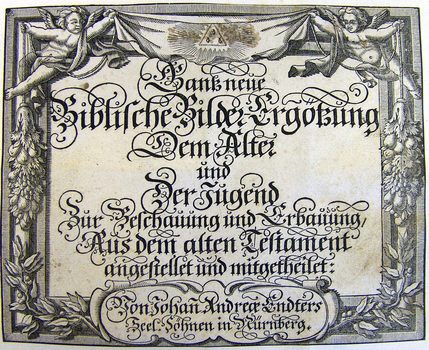 Gantz neue
Biblische Bilder-Ergötzung
Dem Alter
und
Der Jugend
Zur Beschauung und Erbauung,
Aus dem alten Testament
angestellet und mitgetheilet:
Von Johañ Andreæ Endters
Seel. Söhnen in Nürnberg.